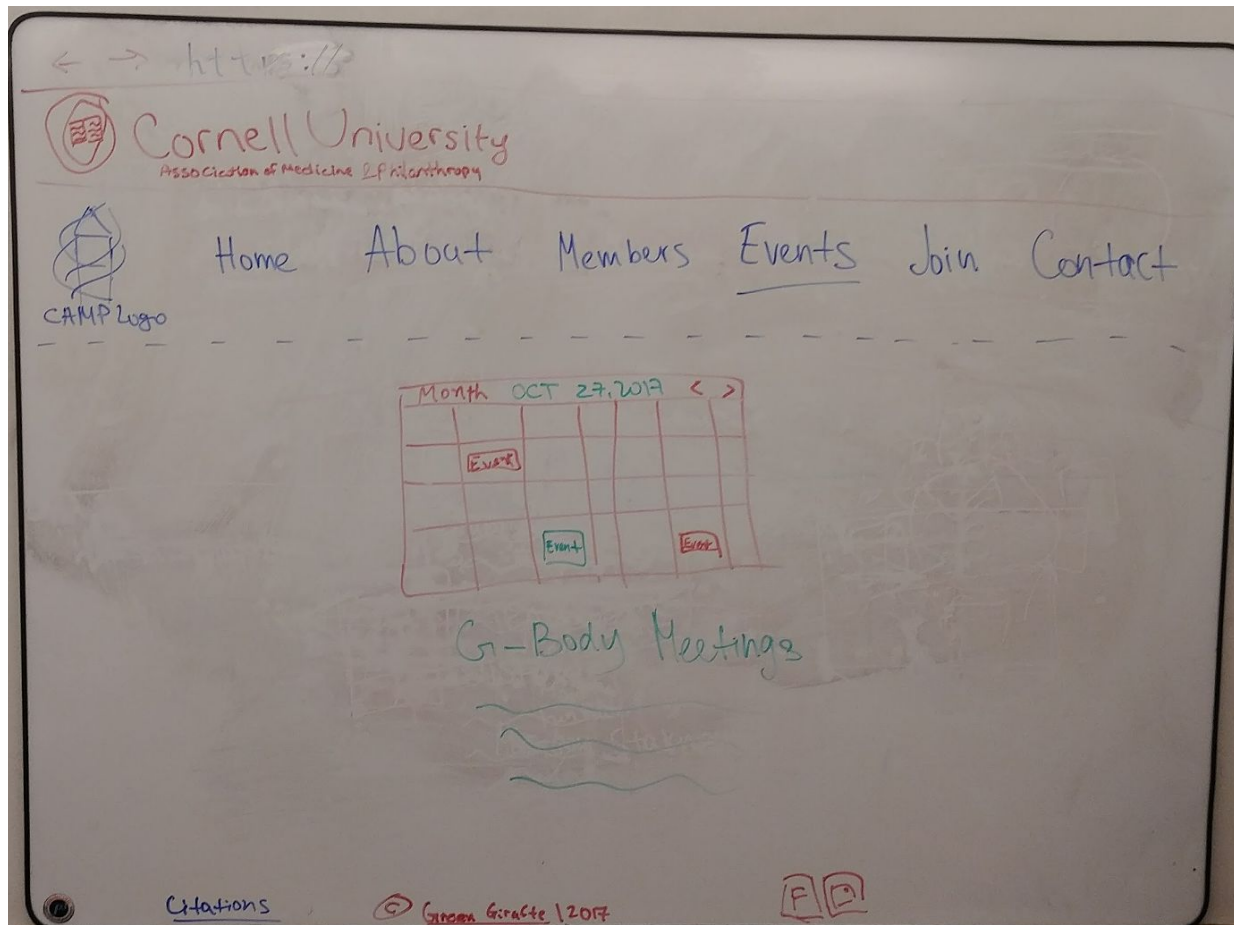 ← → https://
Cornell University
Association of Medicine & Philanthropy
CAMP Logo
Home About Members Events Join Contact
Month OCT 27, 2017 < >
Event
Event Event
G-Body Meetings
Citations © Green Giraffe | 2017 F